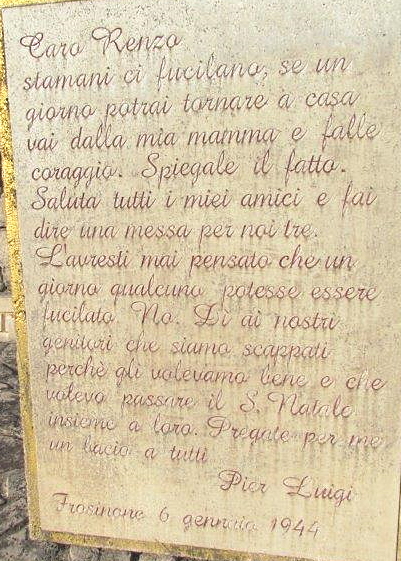 Caro Renzo
stamani ci fucilano, se un
giorno potrai tornare a casa
vai dalla mia mamma e falle
coraggio. Spiegale il fatto.
Saluta tutti i miei amici e fai
dire una messa per noi tre.
L'avresti mai pensato che un
giorno qualcuno potesse essere
fucilato. No. Dì ai nostri
genitori che siamo scappati
perchè gli volevamo bene e che
volevo passare il S. Natale
insieme a loro. Pregate per me
un bacio a tutti
Pier Luigi
Frosinone 6 gennaio 1944
T